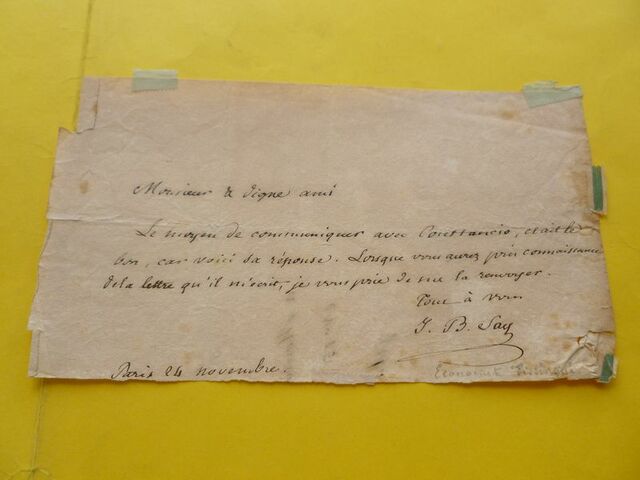 Monsieur & digne ami
Le moyen de communiquer avec Constancio, était le
bon, car voici sa réponse. Lorsque vous aurez pris connaissance
de la lettre qu'il m'écrit, je vous prie de me la renvoyer.
Tout à vous
J. B. Say
Paris 24 novembre.
Economist